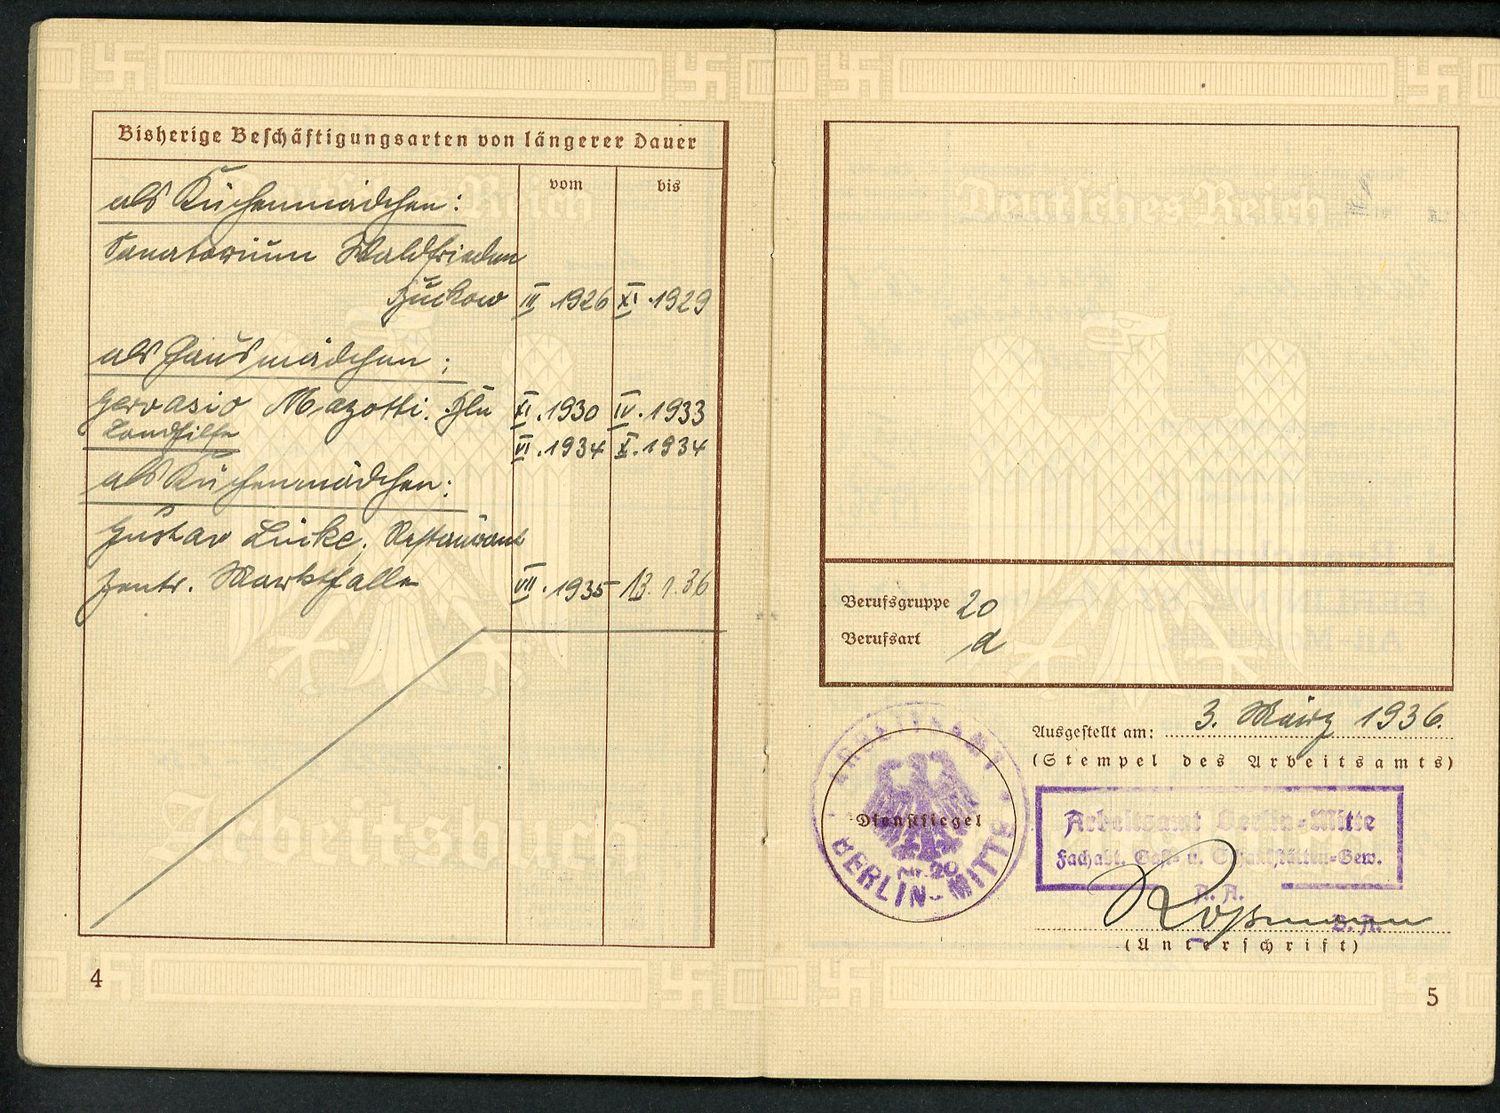 Bisherige Beschäftigungsarten von längerer Dauer
vom bis
als Küchenmädchen:
Sanatorium Waldfrieden
Buckow III.1926 XI.1929
als Hausmädchen:
Gervasio Mazotti. Bln XI.1930 IV.1933
Landhilfe VI.1934 X.1934
als Küchenmädchen:
Gustav Lücke, Restaurant
Zentr. Markthalle VII.1935 13.1.36
4
Deutsches Reich
Arbeitsbuch
Deutsches Reich
Berufsgruppe 20
Berufsart a
Ausgestellt am: 3. März 1936.
(Stempel des Arbeitsamts)
ARBEITSAMT
Dienstsiegel
Nr. 20
BERLIN-MITTE
Arbeitsamt Berlin-Mitte
Fachabt. Gast- u. Schankstätten-Gew.
Roßmann
(Unterschrift)
5